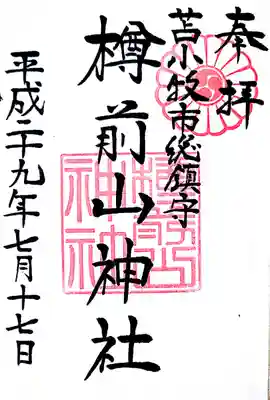 奉拝
苫小牧市総鎮守
樽前山神社
平成二十九年七月十七日